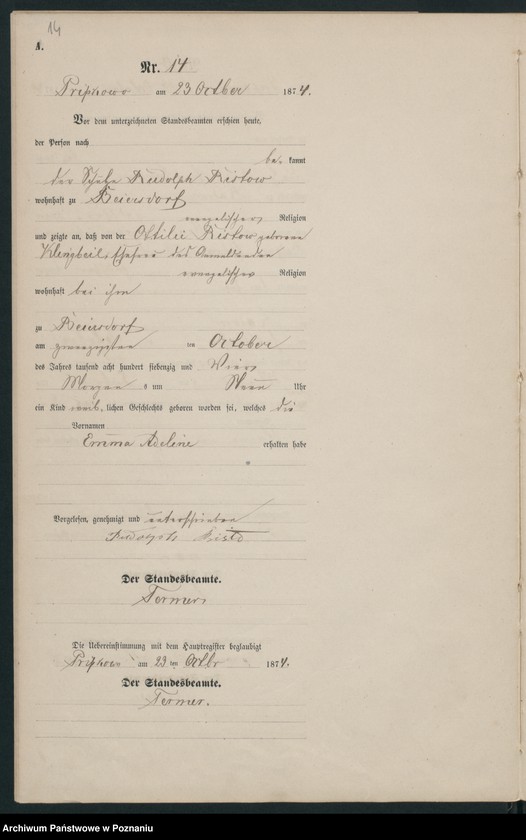 14
A.
Nr. 14
am 23 October 1874.
Vor dem unterzeichneten Standesbeamten erschien heute,
der Person nach
be kannt
der Rudolph Ristow
wohnhaft zu Beiersdorf
evangelischer Religion
und zeigte an, daß von der Ottilie Ristow geborene
Klingbeil, Ehefrau des Anmeldenden
evangelischer Religion
wohnhaft bei ihm
zu Beiersdorf
am zwanzigsten ten October
des Jahres tausend acht hundert siebenzig und Vier
Morgen s um Neun Uhr
ein Kind weib lichen Geschlechts geboren worden sei, welches die
Vornamen
Emma Adeline erhalten habe
Vorgelesen, genehmigt und unterschrieben
Rudolph
Der Standesbeamte.
Termer
Die Uebereinstimmung mit dem Hauptregister beglaubigt
am 23 ten Octbr 1874.
Der Standesbeamte.
Termer.
Archiwum Państwowe w Poznaniu